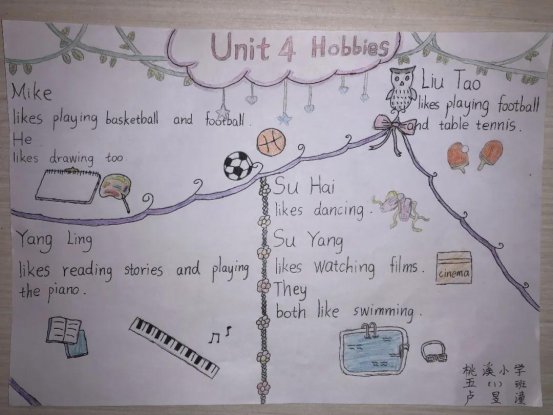 Unit 4 Hobbies
Mike
likes playing basketball and football.
He
likes drawing too
Liu Tao
likes playing football
and table tennis.
Yang Ling
likes reading stories and playing
the piano.
Su Hai
likes dancing.
Su Yang
likes watching films.
They
both like swimming.
cinema
桃溪小学
五(1)班
卢昱潼